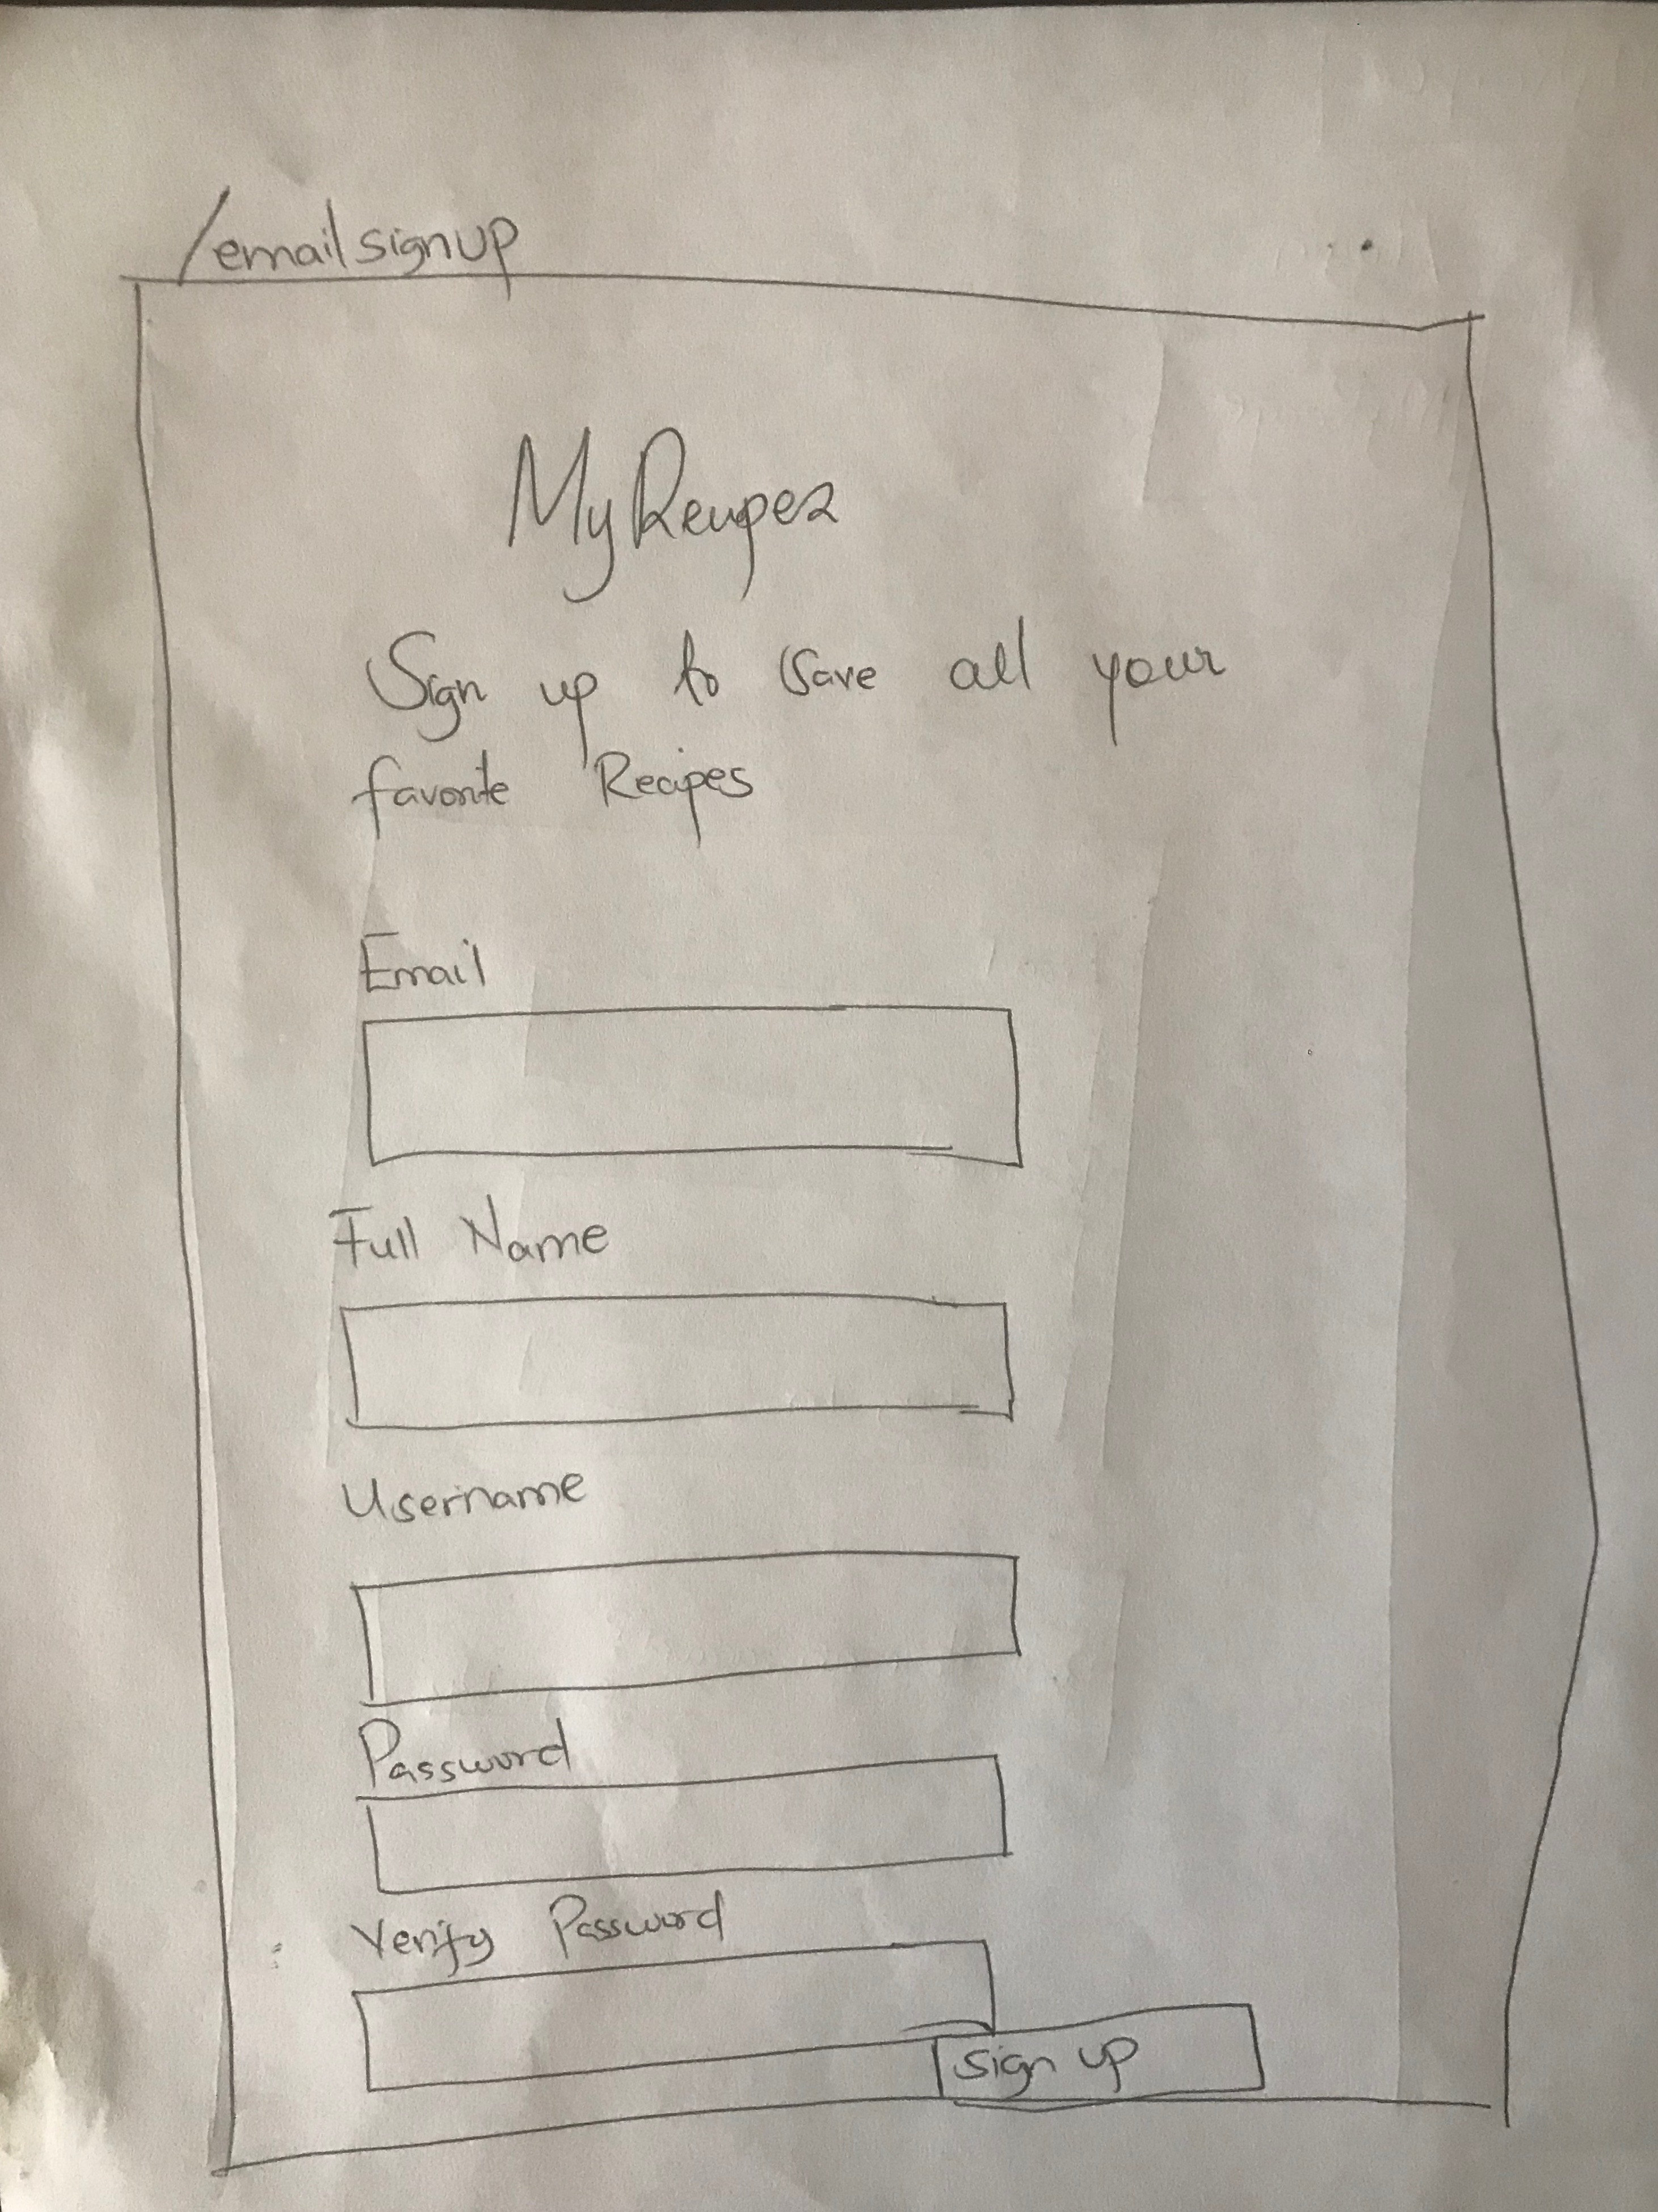 /emailsignup
MyRecipez
Sign up to save all your
favorite Recipes
Email
Full Name
Username
Password
Verify Password
sign up